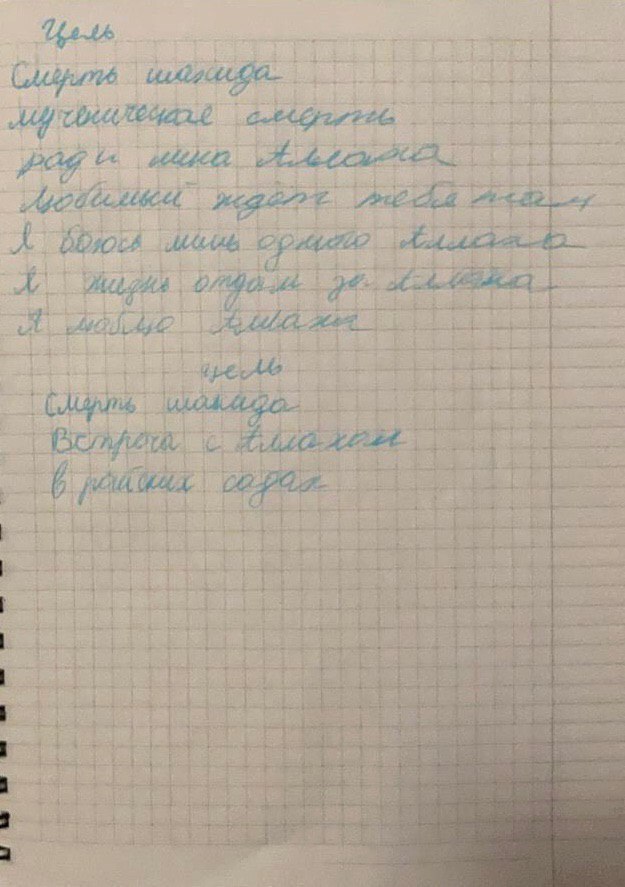 Цель
Смерть шахида
мученическая смерть
ради лика Аллаха
Любимый ждёт тебя там
Я боюсь лишь одного Аллаха
Я жизнь отдам за Аллаха
Я люблю Аллаха
цель
Смерть шахида
Встреча с Аллахом
в райских садах